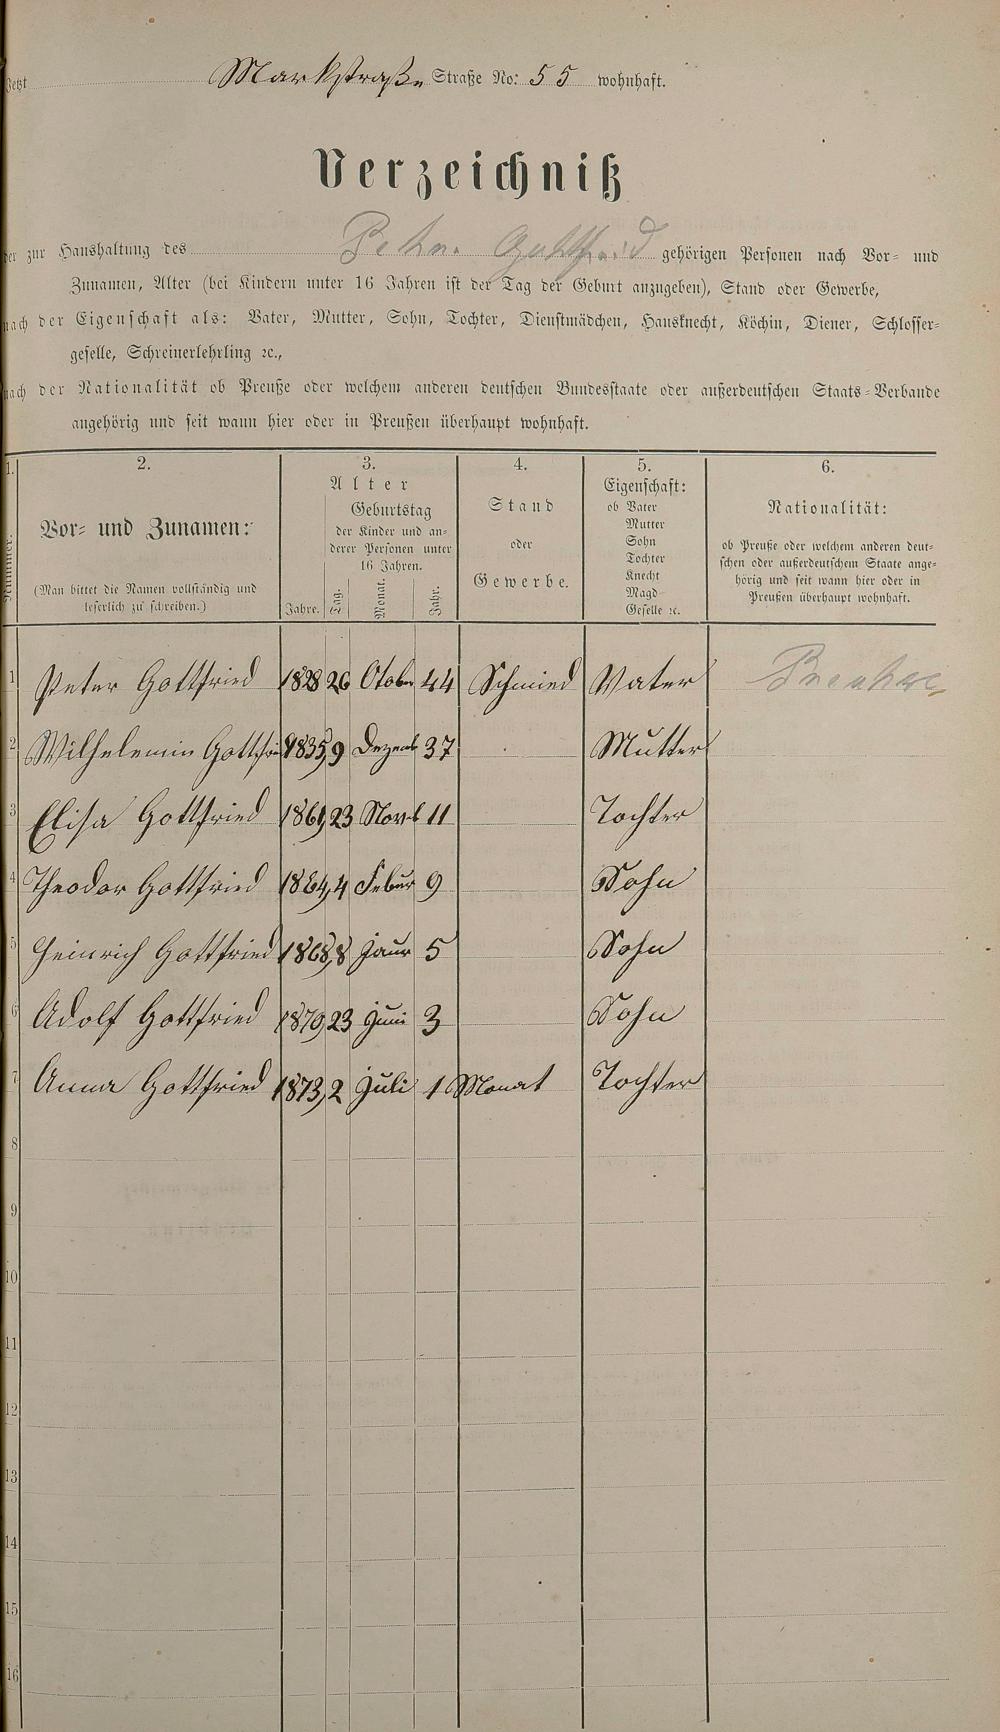 Jetzt Markstraße Straße No: 55 wohnhaft.
Verzeichniß
der zur Haushaltung des Peter Gottfried gehörigen Personen nach Vor- und
Zunamen, Alter (bei Kindern unter 16 Jahren ist der Tag der Geburt anzugeben), Stand oder Gewerbe,
nach der Eigenschaft als: Vater, Mutter, Sohn, Tochter, Dienstmädchen, Hausknecht, Köchin, Diener, Schlosser-
geselle, Schreinerlehrling ꝛc.,
nach der Nationalität ob Preuße oder welchem anderen deutschen Bundesstaate oder außerdeutschen Staats-Verbande
angehörig und seit wann hier oder in Preußen überhaupt wohnhaft.
1.
Nummer.
2.
Vor- und Zunamen:
(Man bittet die Namen vollständig und
leserlich zu schreiben.)
3.
Alter
Geburtstag
der Kinder und an-
derer Personen unter
16 Jahren.
Jahre. Tag. Monat. Jahr.
4.
Stand
oder
Gewerbe.
5.
Eigenschaft:
ob Vater
Mutter
Sohn
Tochter
Knecht
Magd
Geselle ꝛc.
6.
Nationalität:
ob Preuße oder welchem anderen deut-
schen oder außerdeutschem Staate ange-
hörig und seit wann hier oder in
Preußen überhaupt wohnhaft.
1 Peter Gottfried 1828 26 Otober 44 Schmied Vater
2 Wilhelemin Gottfried 1835, 9 Dezemb 37 Mutter
3 Elisa Gottfried 1861, 23 Novb 11 Tochter
4 Theodor Gottfried 1864, 4 Febur 9 Sohn
5 Heinrich Gottfried 1868, 8 Jaur 5 Sohn
6 Adolf Gottfried 1870, 23 Juni 3 Sohn
7 Anna Gottfried 1873, 2 Juli 1 Monat Tochter
8
9
10
11
12
13
14
15
16